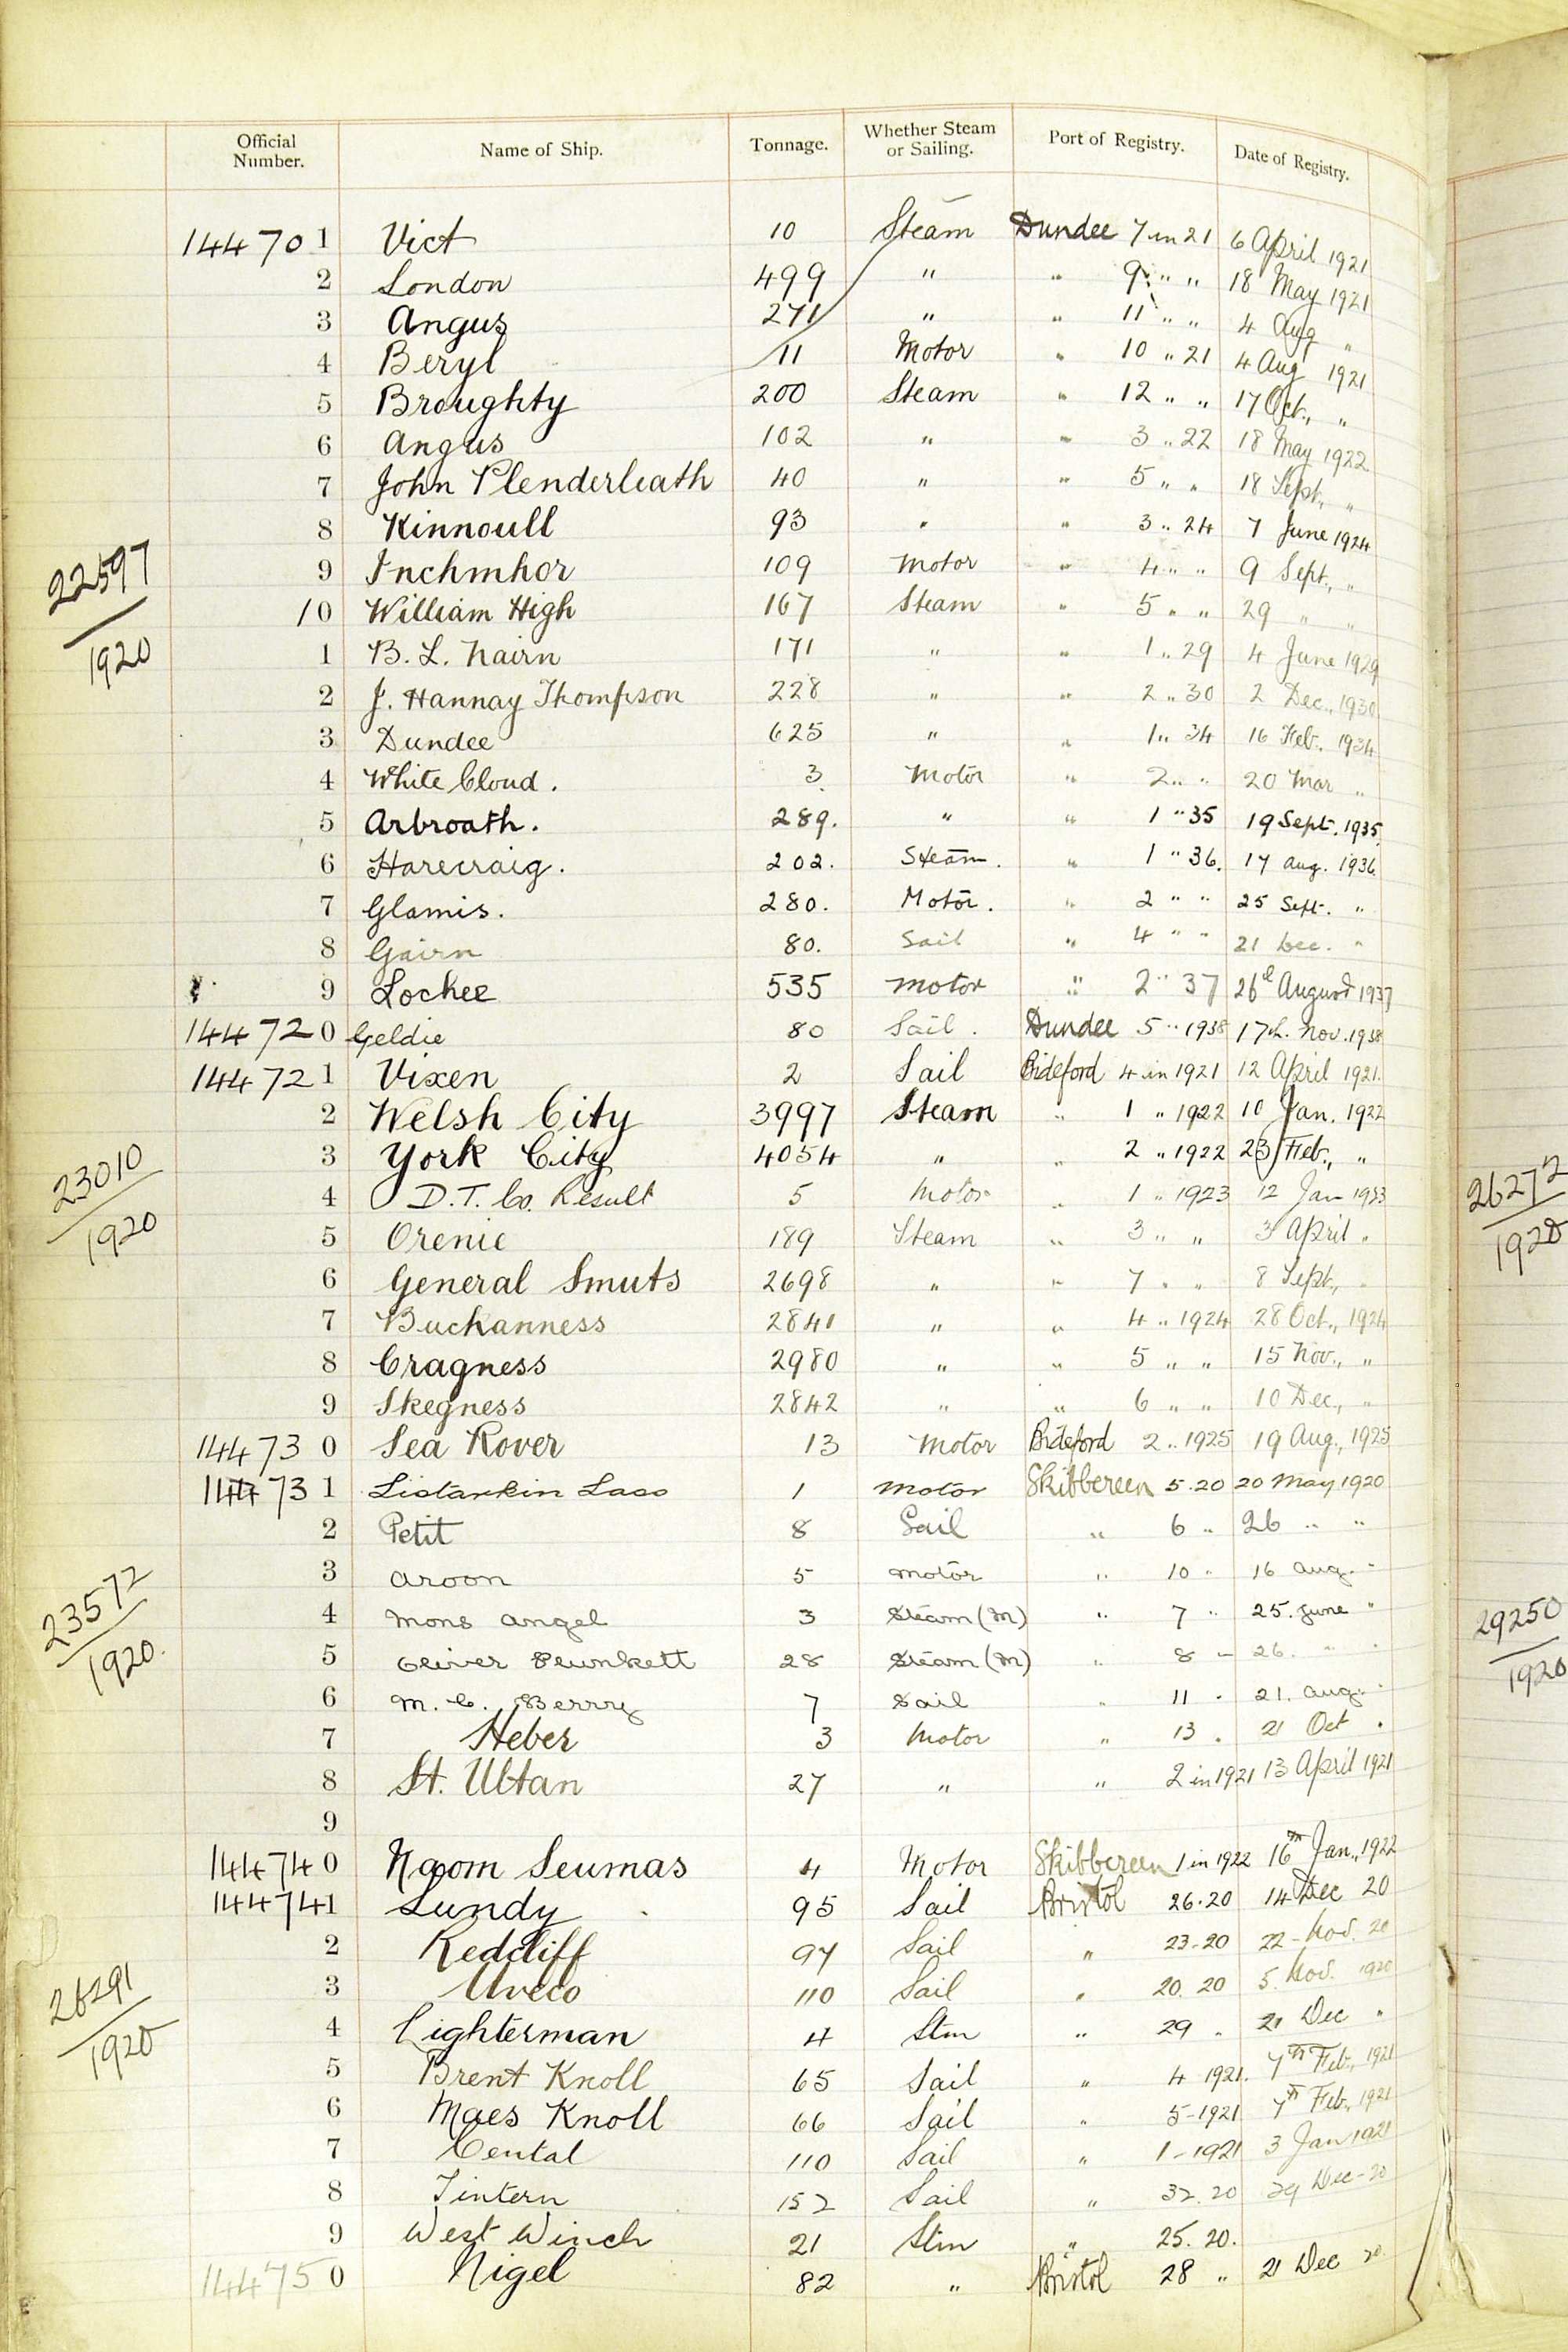 Official Number. Name of Ship. Tonnage. Whether Steam or Sailing. Port of Registry. Date of Registry.
144701 Vict 10 Steam Dundee 7 in 21 6 April 1921
2 London 499 " " 9 " " 18 May 1921
3 Angus 271 " " 11 " " 4 Aug "
4 Beryl 11 Motor " 10 " 21 4 Aug 1921
5 Broughty 200 Steam " 12 " " 17 Oct., "
6 Angus 102 " " 3 " 22 18 May 1922
7 John Plenderleath 40 " " 5 " " 18 Sept., "
8 Kinnoull 93 " " 3 " 24 7 June 1924
22597
1920
9 Inchmhor 109 Motor " 4 " " 9 Sept., "
10 William High 167 Steam " 5 " " 29 " "
1 B. L. Nairn 171 " " 1 " 29 4 June 1929
2 J. Hannay Thompson 228 " " 2 " 30 2 Dec., 1930
3 Dundee 625 " " 1 " 34 16 Feb. 1934
4 White Cloud. 3 Motor " 2 " " 20 Mar "
5 Arbroath. 289. " " 1 " 35 19 Sept. 1935.
6 Harecraig. 202. Steam. " 1 " 36. 17 Aug. 1936
7 Glamis. 280. Motor. " 2 " " 25 Sept. "
8 Gairn 80. Sail " 4 " " 21 Dec. "
9 Lochee 535 Motor " 2 " 37 26th August 1937
144720 Geldie 80 Sail. Dundee 5 " 1938 17th. Nov. 1938
144721 Vixen 2 Sail Bideford 4 in 1921 12 April 1921.
2 Welsh City 3997 Steam " 1 " 1922 10 Jan. 1922
3 York City 4054 " " 2 " 1922 23 Feb., "
23010
1920
4 D.T. Co. Result 5 Motor " 1 " 1923 12 Jan 1923
26272
1920
5 Orenie 189 Steam " 3 " " 3 April "
6 General Smuts 2698 " " 7 " " 8 Sept., "
7 Buchanness 2841 " " 4 " 1924 28 Oct., 1924
8 Cragness 2980 " " 5 " " 15 Nov., "
9 Skegness 2842 " " 6 " " 10 Dec., "
144730 Sea Rover 13 Motor Bideford 2 " 1925 19 Aug., 1925
144731 Listarkin Lass 1 Motor Skibbereen 5.20 20 May 1920
2 Petit 8 Sail " 6 " 26 " "
3 Aroon 5 Motor " 10 " 16 Aug. "
23572
1920.
4 Mons Angel 3 Steam (M) " 7 " 25. June "
29250
1920
5 Oliver Plunkett 28 Steam (M) " 8 " 26. " "
6 M. C. Berry 7 Sail " 11 " 21. Aug. "
7 Heber 3 Motor " 13 " 21 Oct "
8 St. Ultan 27 " " 2 in 1921 13 April 1921
9
144740 Naom Seumas 4 Motor Skibbereen 1 in 1922 16th Jan., 1922
144741 Lundy 95 Sail Bristol 26.20 14 Dec 20
2 Redcliff 97 Sail " 23-20 22-Nov. 20
3 Uveco 110 Sail " 20.20 5. Nov. 1920
26291
1920
4 Lighterman 4 Stm " 29 " 21 Dec "
5 Brent Knoll 65 Sail " 4 1921. 7th Feb., 1921
6 Maes Knoll 66 Sail " 5-1921 7th Feb., 1921
7 Cental 110 Sail " 1-1921 3 Jan 1921
8 Tintern 152 Sail " 32.20 29 Dec-20
9 West Winch 21 Stm " 25.20.
144750 Nigel 82 " Bristol 28 " 21 Dec 20